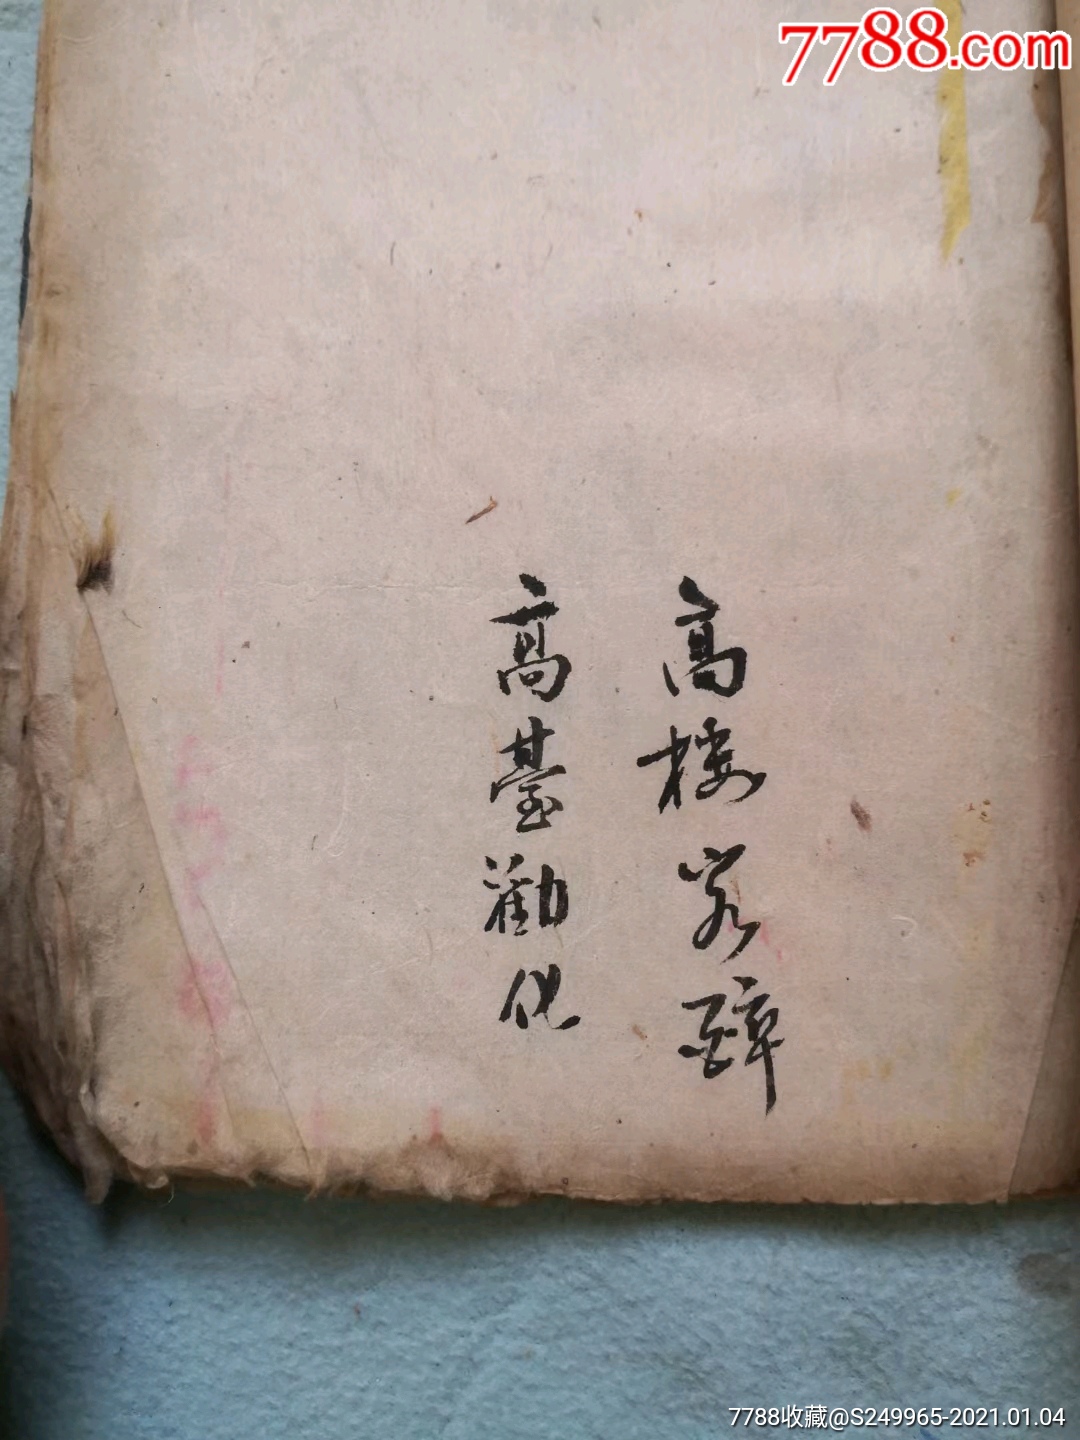 7788.com
高楼客醉
高臺勸化
7788收藏@S249965-2021.01.04